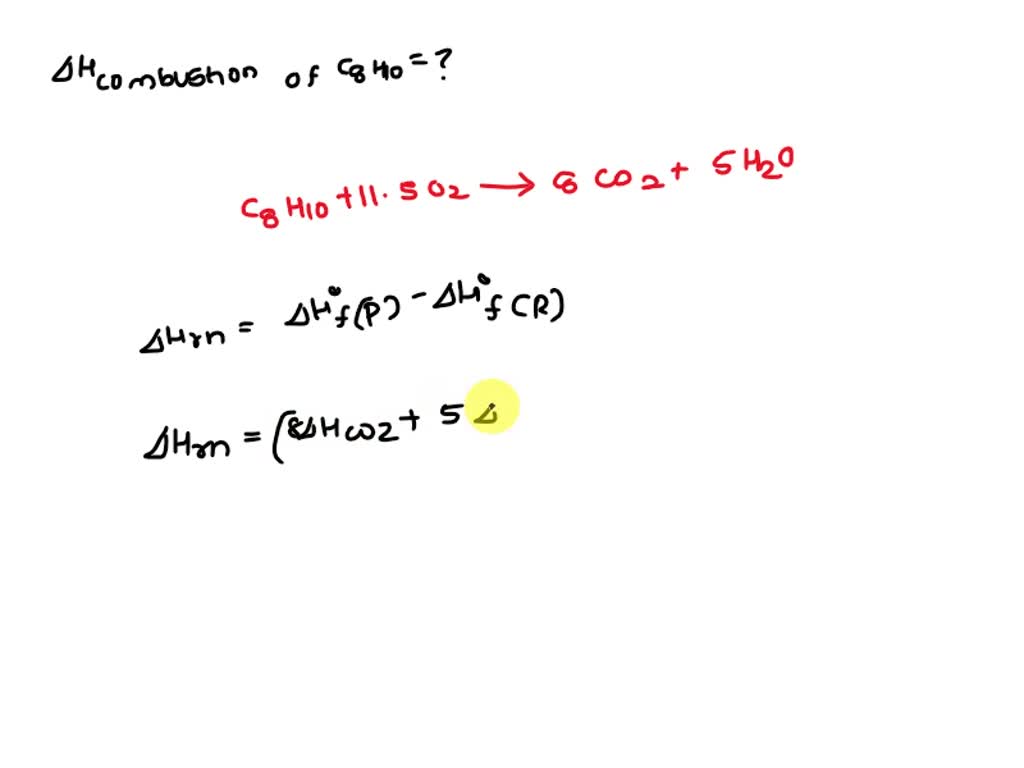 ΔHcombustion of C8H10 = ?
C8H10 + 11.5 O2 → 8 CO2 + 5 H2O
ΔHrn = ΔH°f(P) - ΔH°f(R)
ΔHrn = (8ΔHCO2 + 5 Δ